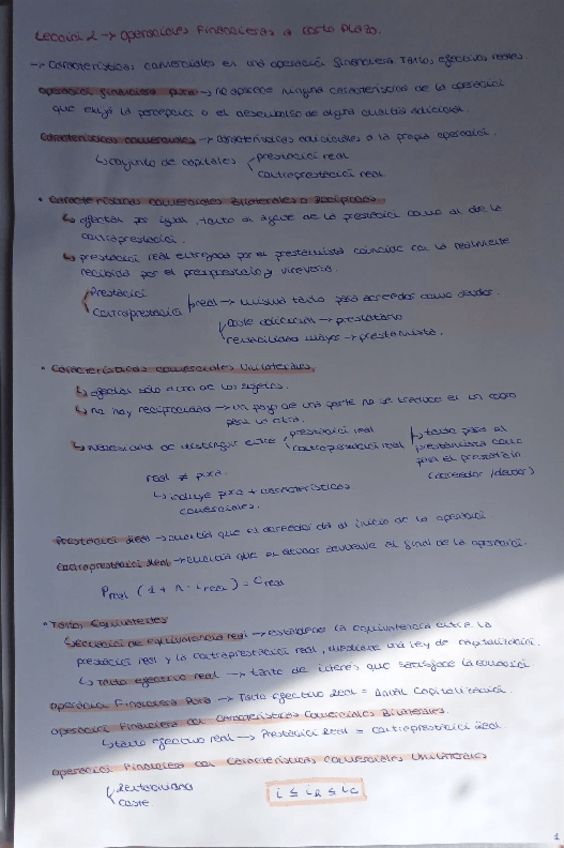 Lección 2 → Operaciones Financieras a Corto Plazo.
→ Características comerciales en una operación financiera. Tantos efectivos reales.
Operación financiera pura → no aparece ninguna característica de la operación
que exija la percepción o el desembolso de alguna cuantía adicional.
Características comerciales → características adicionales a la propia operación.
↳ conjunto de capitales prestación real
contraprestación real.
• Características comerciales Bilaterales o Recíprocas
↳ afectan por igual, tanto al de la prestación como al de la
contraprestación.
↳ prestación real entregada por el prestamista coincide con la realmente
recibida por el prestatario y viceversa.
Prestación
Contraprestación real → mismo tanto para acreedor como deudor.
coste adicional → prestatario
remuneración mayor → prestamista.
• Características comerciales Unilaterales.
↳ afectan sólo a uno de los sujetos.
↳ no hay reciprocidad → un pago de una parte no se traduce en un cobro
para la otra.
↳ necesidad de distinguir entre prestación real
contraprestación real tanto para el
prestamista como
para el prestatario
(acreedor/deudor)
real ≠ pura.
↳ incluye pura + características
comerciales.
Prestación Real → cuantía que el acreedor da al inicio de la operación.
Contraprestación Real → cuantía que el deudor devuelve al final de la operación.
P real (1 + n · i real) = C real
• Tantos Equivalentes
Ecuación de equivalencia real → establece la equivalencia entre la
prestación real y la contraprestación real, mediante una ley de capitalización.
↳ Tanto efectivo real → tanto de interés que satisface la ecuación
Operación Financiera Pura → Tanto efectivo Real = Capitalización.
Operación Financiera con Características Comerciales Bilaterales.
↳ tanto efectivo real → Prestación Real = contraprestación Real.
Operación Financiera con Características Comerciales Unilaterales
Rentabilidad
Coste
i ≤ i R ≤ i C
1